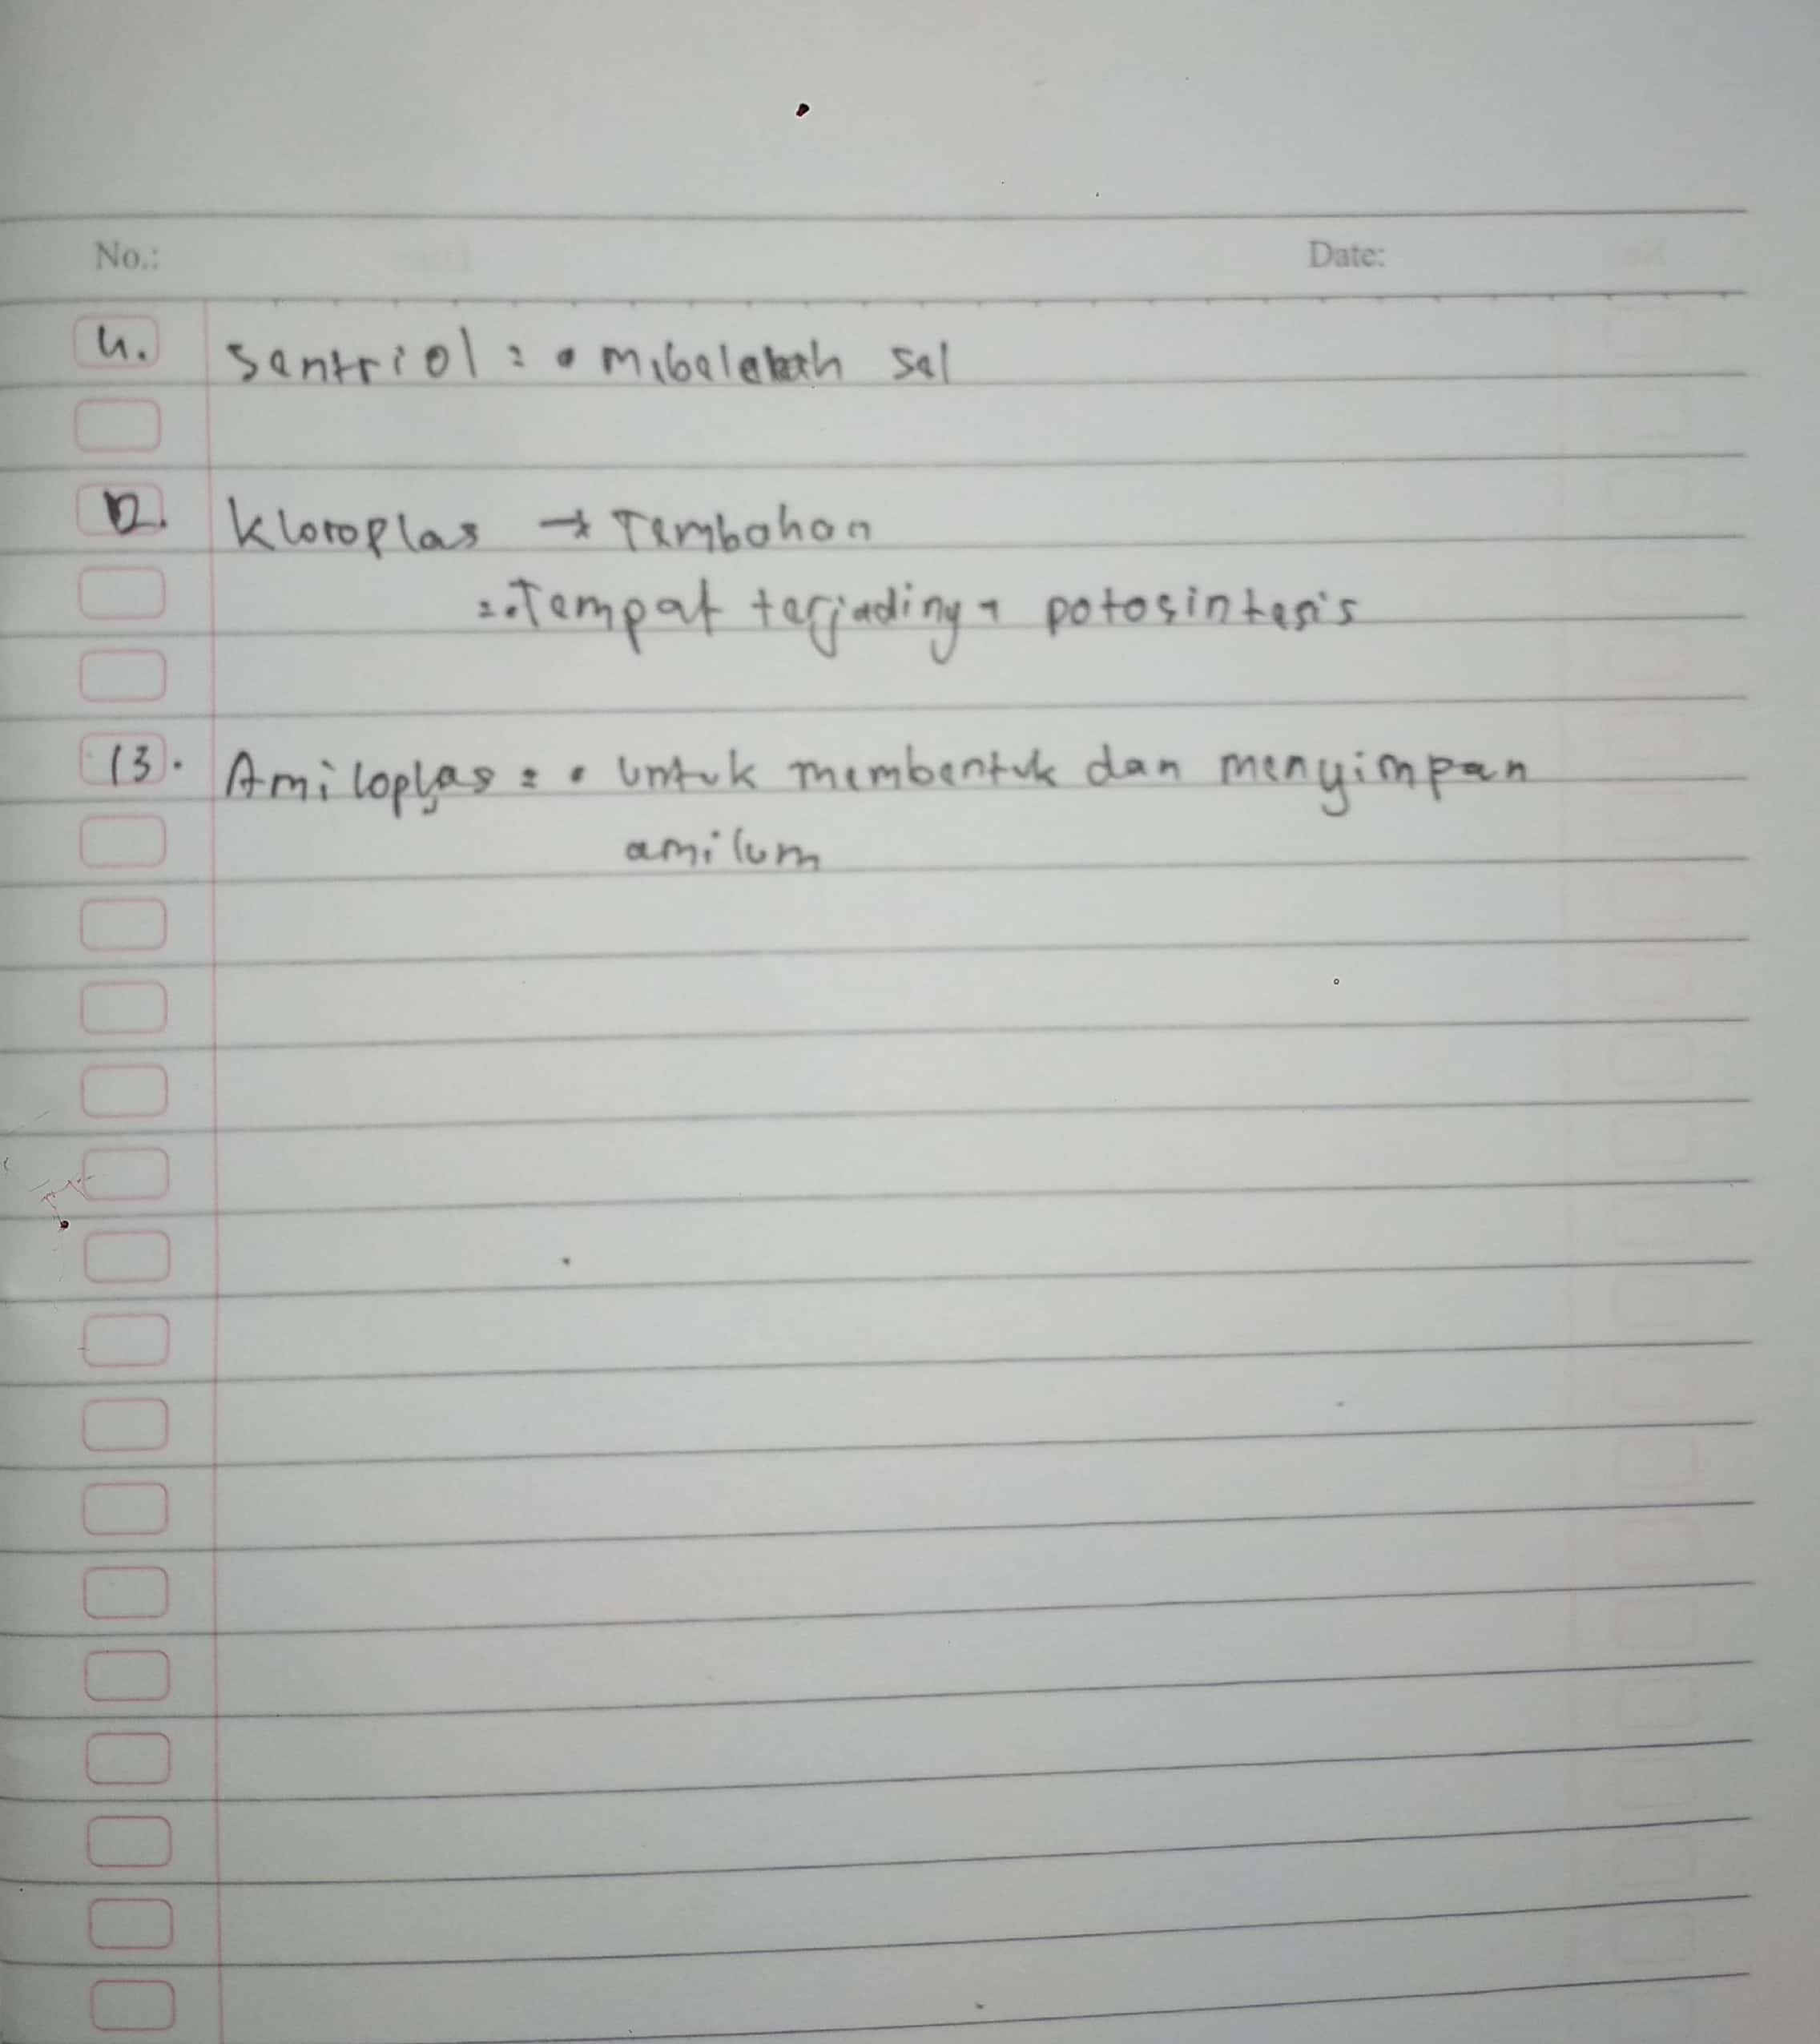 No.: Date:
4. Sentriol = • sel
12. Kloroplas → Tembohon
= • Tempat terjadinya potosintesis
13. Amiloplas = • untuk membentuk dan menyimpan
amilum